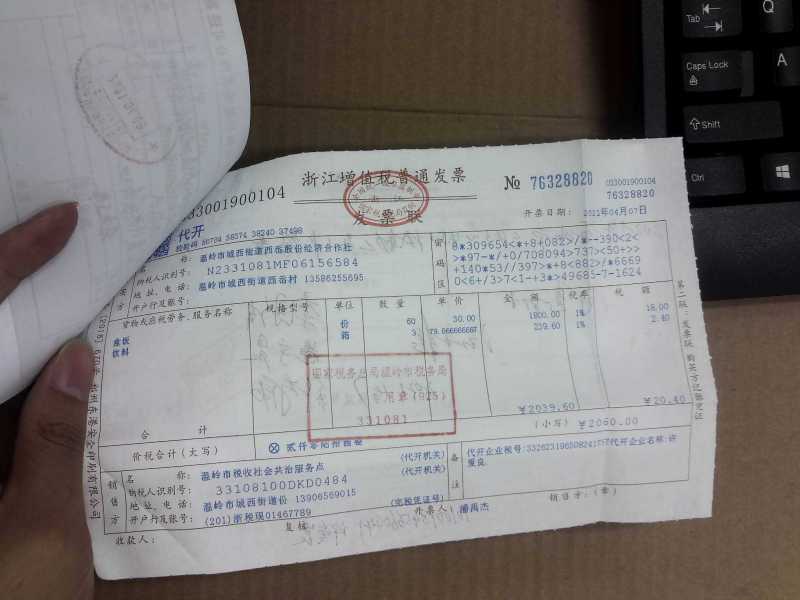 浙江增值税普通发票
033001900104
№ 76328820
033001900104
76328820
发票联
开票日期: 2021年04月07日
代开
校验码 50784 58574 38240 37498
名 称: 温岭市城西街道西岙股份经济合作社
纳税人识别号: N2331081MF06156584
地 址、电 话: 温岭市城西街道西岙村 13586255695
开户行及账号:
密码区
8*309654<*+8+082>/*--390<2<
>*97-*/+0/708094>737><50+>>
+140*53//397>*+8<882>/*6669
0<6+/3>7<1-+3*>49685-7-1624
货物或应税劳务、服务名称 规格型号 单位 数量 单价 金额 税率 税额
盒饭 份 60 30.00 1800.00 1% 18.00
饮料 箱 3 79.866666667 239.60 1% 2.40
国家税务总局温岭市税务局
331081
合 计 ¥2039.60 ¥20.40
价税合计(大写) ⊗ 贰仟零陆拾圆整 (小写) ¥2060.00
销售方
名 称: 温岭市税收社会共治服务点 (代开机关)
纳税人识别号: 33108100DKD0484 (代开机关)
地 址、电 话: 温岭市城西街道份 13906569015
开户行及账号: (201)浙税现01467789 (完税凭证号)
备注
代开企业名称:许
重良
收款人: 复核: 开票人: 潘禹杰 销售方:(章)
第二联:发票联 购买方记账凭证
Tab
Q
Caps Lock
A
Shift
Ctrl